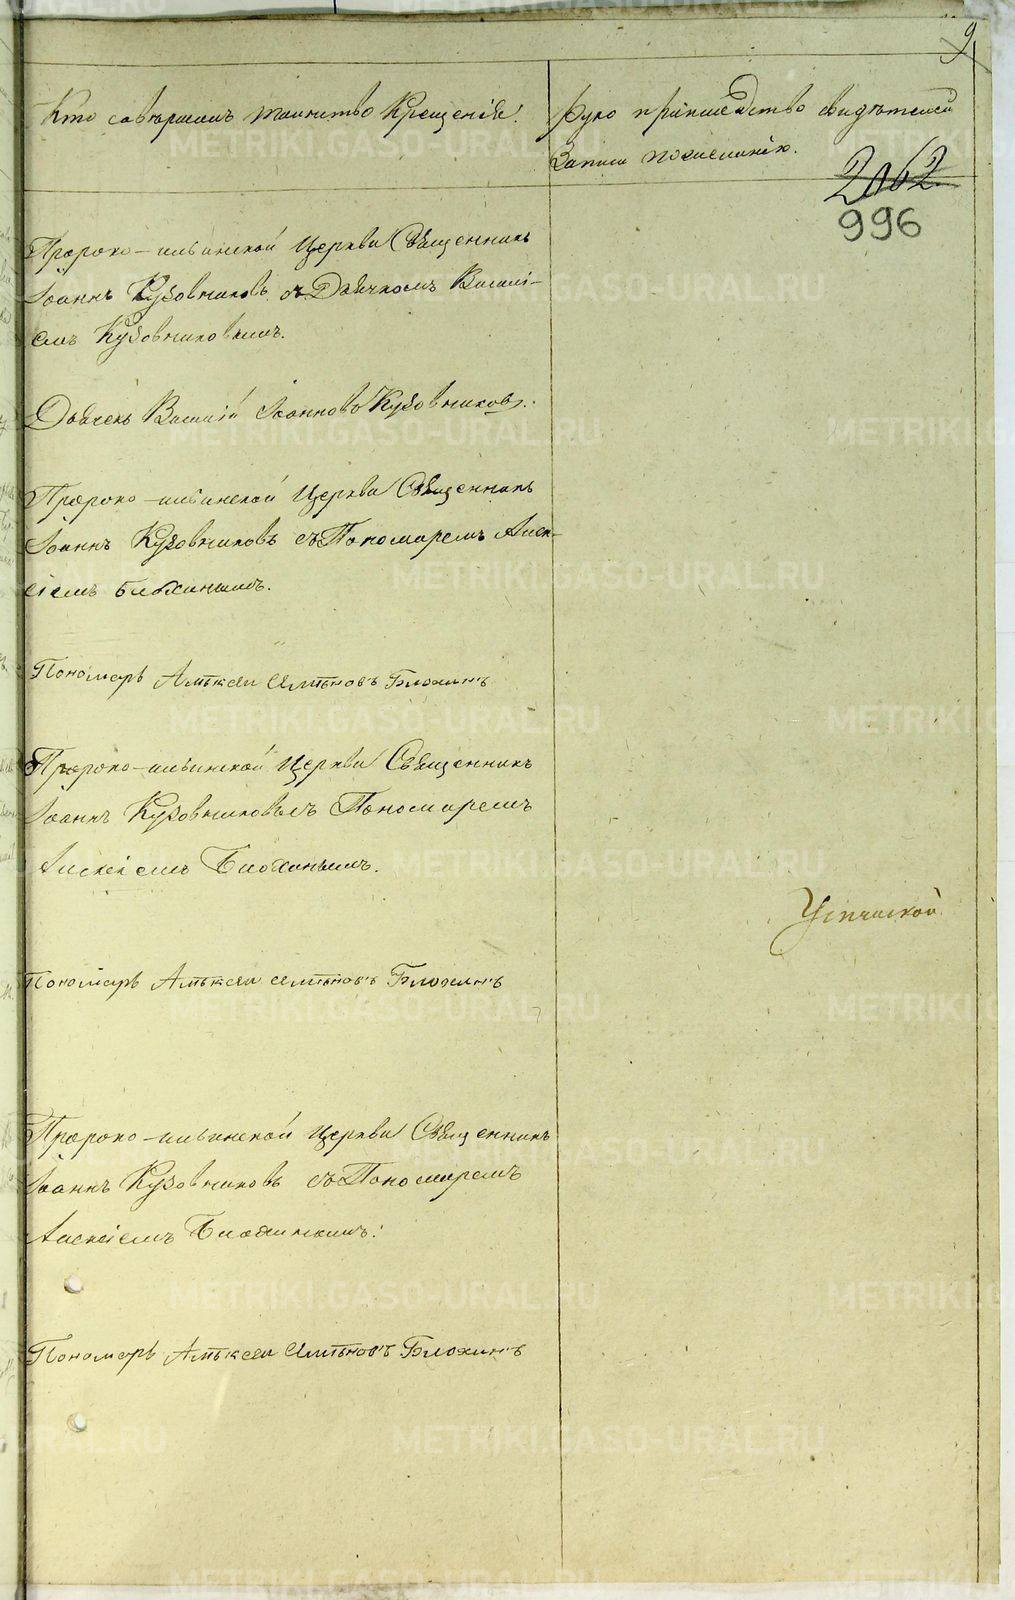 9
Кто совершалъ таинство Крещенія.
Руко прикладство свидѣтелей
Записи по желанію.
2062
996
Пророко-ильинской Церкви Священникъ
Іоаннъ Кузовниковъ съ Дьячкомъ Васил-
емъ Кузовниковымъ.
Дьячекъ Василій Іоанновъ Кузовниковъ.
Пророко-ильинской Церкви Священникъ
Іоаннъ Кузовниковъ съ Пономаремъ Алек-
сіемъ Блохинымъ.
Пономарь Алѣксей Блохинъ
Пророко-ильинской Церкви Священникъ
Іоаннъ Кузовниковъ съ Пономаремъ
Алексіемъ Блохинымъ.
Пономарь Алѣксей Блохинъ
Пророко-ильинской Церкви Священникъ
Іоаннъ Кузовниковъ съ Пономаремъ
Алексіемъ Блохинымъ.
Пономарь Алѣксей Блохинъ
METRIKI.GASO-URAL.RU